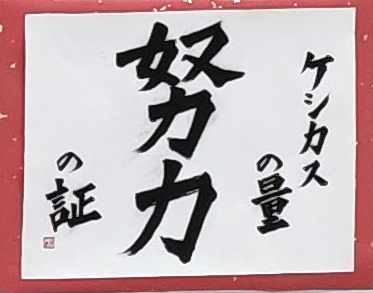 ケシカス
の量
努力
の証